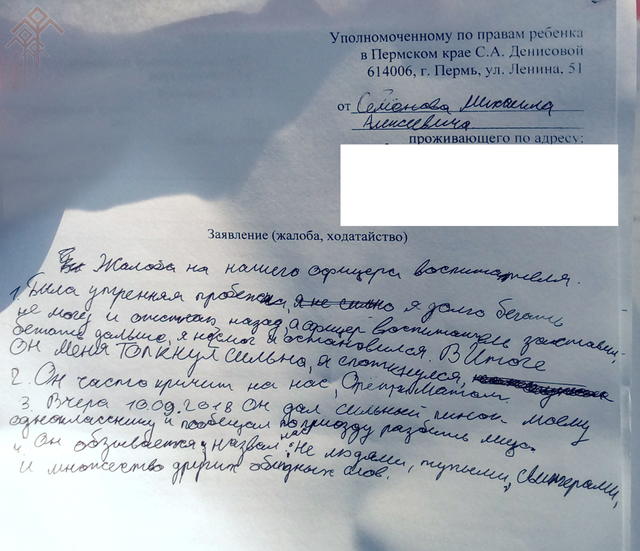 Уполномоченному по правам ребенка
в Пермском крае С.А. Денисовой
614006, г. Пермь, ул. Ленина, 51
от Семёнова Михаила
Алексеевича
проживающего по адресу:
Заявление (жалоба, ходатайство)
Жалоба на нашего офицера воспитателя.
1. Была утренняя пробежка, я не сильно я долго бегать
не могу и отстаю назад, а офицер воспитатель заставил
бегать дальше, я не смог и остановился. В итоге
он меня толкнул сильно, я споткнулся,
2. Он часто кричит на нас, Орёт Матом.
3. Вчера 10.09.2018 он дал сильный пинок моему
однокласснику и пообещал по приезду разбить лицо.
4. Он обзывается и назвал нас: Не людями, тупыми, свинтерами,
и множество других обидных слов.